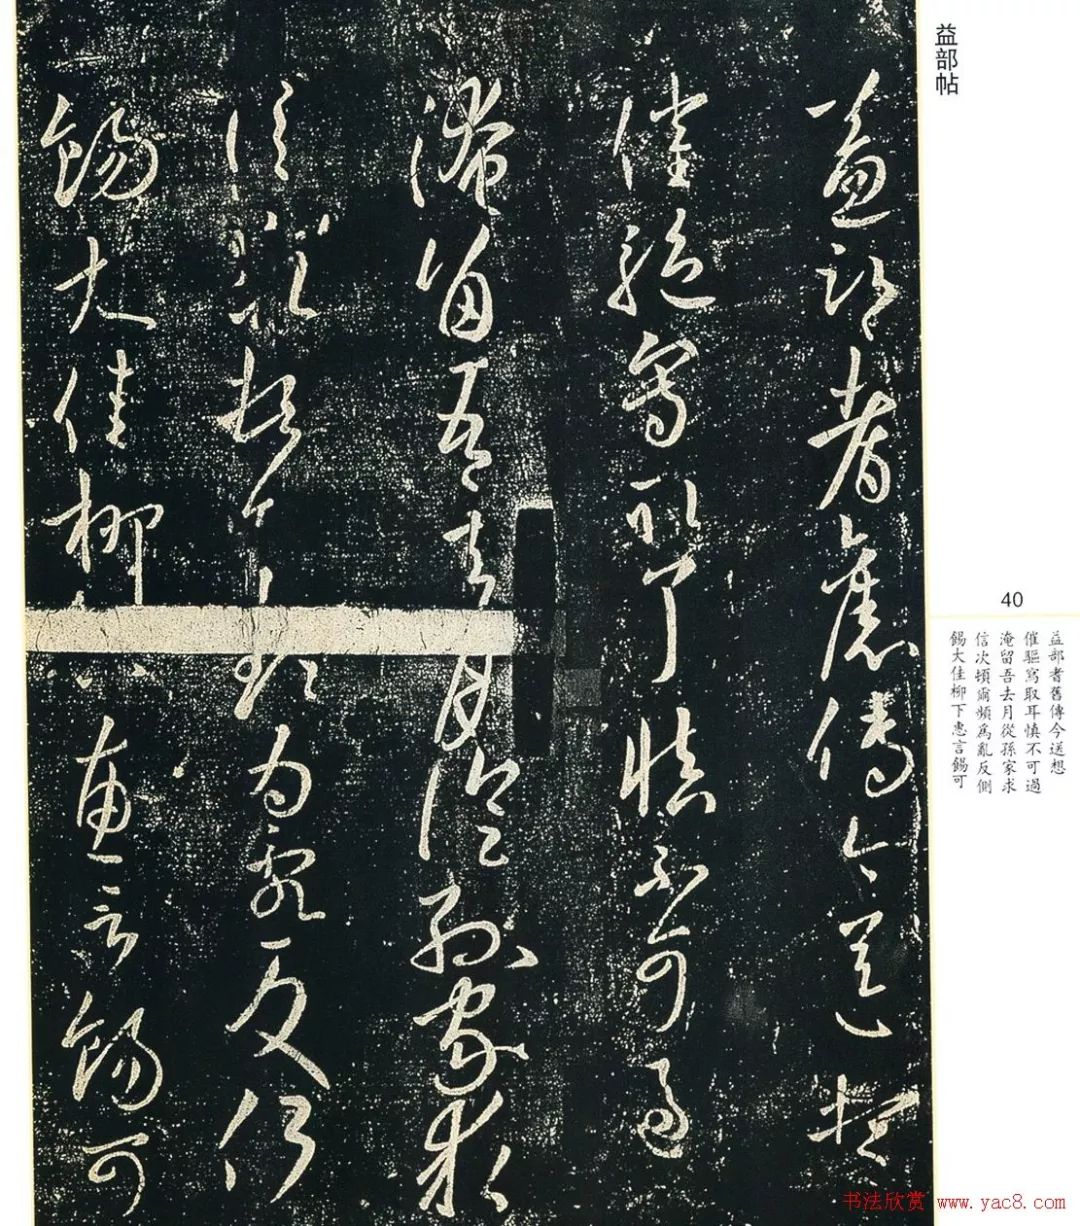 益部帖
益部耆舊傳今送想
催驅寫取耳慎不可過
淹留吾去月從孫家求
信次頓爾頻為亂反側
餳大佳柳下惠言餳可
40
益部耆舊傳今送想
催驅寫取耳慎不可過
淹留吾去月從孫家求
信次頓爾頻為亂反側
餳大佳柳下惠言餳可
书法欣赏 www.yac8.com